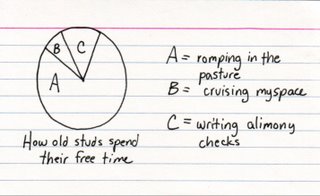 B
C
A
How old studs spend
their free time
A = romping in the
pasture
B = cruising myspace
C = writing alimony
checks